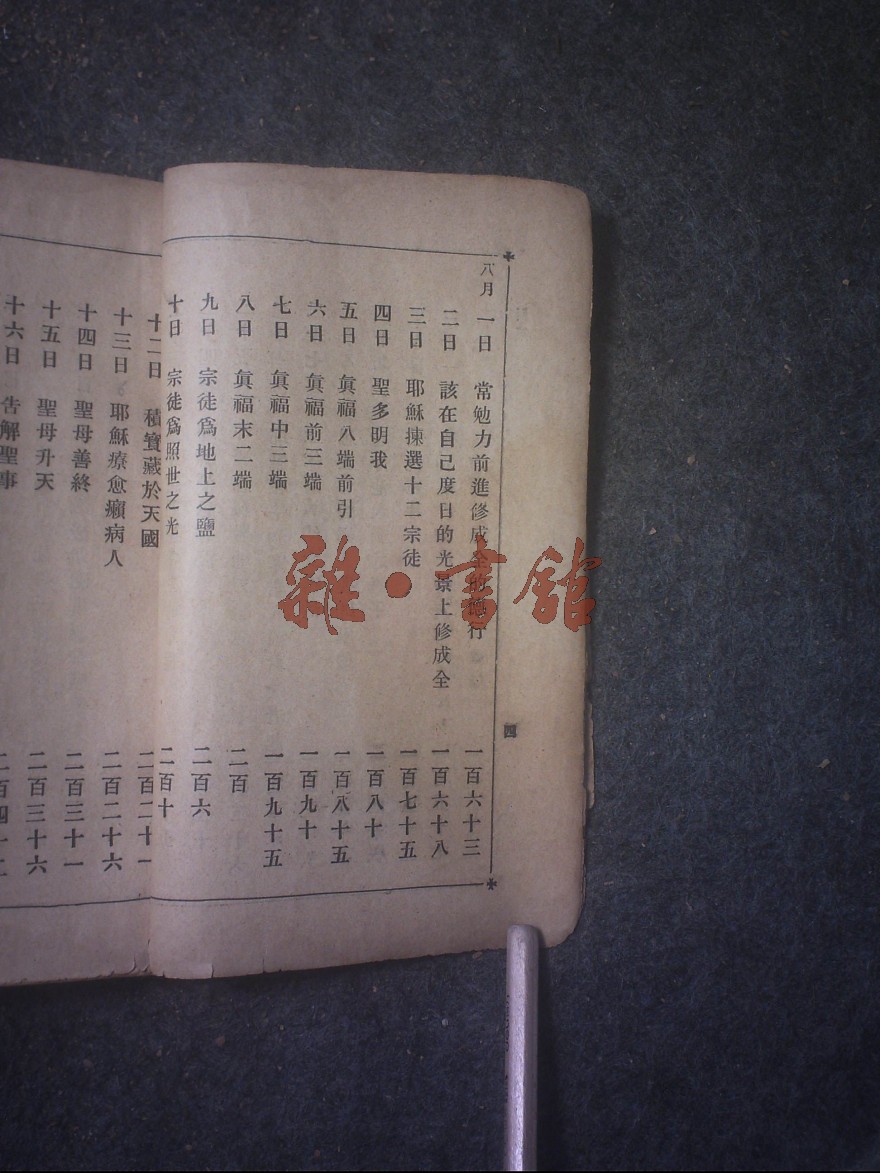 八月 一日 常勉力前進修成全的德行 一百六十三
二日 該在自己度日的光景上修成全 一百六十八
三日 耶穌揀選十二宗徒 一百七十五
四日 聖多明我 一百八十
五日 眞福八端前引 一百八十五
六日 眞福前三端 一百九十
七日 眞福中三端 一百九十五
八日 眞福末二端 二百
九日 宗徒爲地上之鹽 二百六
十日 宗徒爲照世之光 二百十
十二日 積寶藏於天國 二百二十一
十三日 耶穌療愈癩病人 二百二十六
十四日 聖母善終 二百三十一
十五日 聖母升天 二百三十六
十六日 告解聖事 二百四十二
四
雜·書館